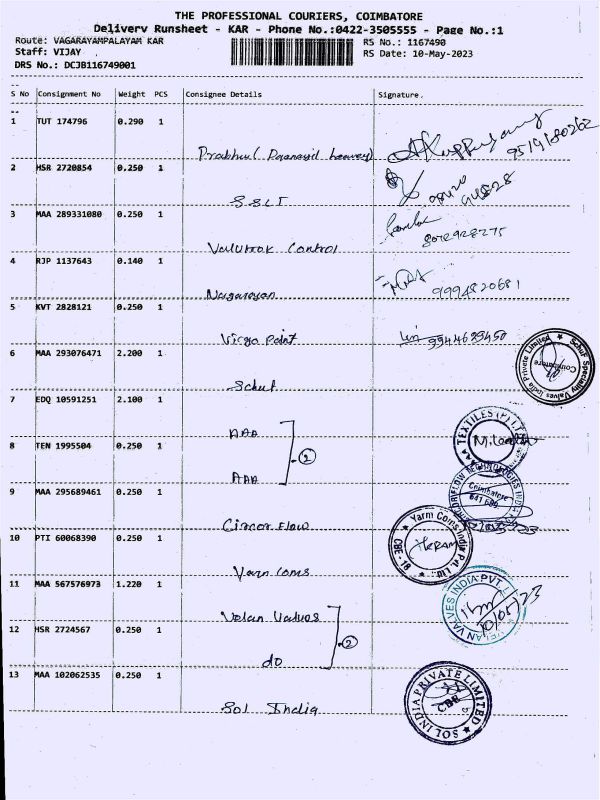 THE PROFESSIONAL COURIERS, COIMBATORE
Delivery Runsheet - KAR - Phone No.:0422-3505555 - Page No.:1
Route: VAGARAYAMPALAYAM KAR RS No.: 1167490
Staff: VIJAY RS Date: 10-May-2023
DRS No.: DCJB116749001
S No Consignment No Weight PCS Consignee Details Signature.
1 TUT 174796 0.290 1
Prabhu
2 HSR 2720854 0.250 1
SSLT
3 MAA 289331080 0.250 1
Control
8072928275
4 RJP 1137643 0.140 1
Nagarayan 9994820681
5 KVT 2828121 0.250 1
Virgo Point 9944639450
6 MAA 293076471 2.200 1
Schuf Schuf Speciality Valves India Private Limited Coimbatore
7 EDQ 10591251 2.100 1
AAA
8 TEN 1995504 0.250 1 2
AAA TEXTILES (P) LTD
9 MAA 295689461 0.250 1
Circor Flow TECHNOLOGIES INDIA Coimbatore
10 PTI 60068390 0.250 1
Yarn Coms Yarn Coms India Pvt. Ltd CBE - 81
11 MAA 567576973 1.220 1
Velan Valves VELAN VALVES INDIA PVT 10/05/23
12 HSR 2724567 0.250 1 2
do
13 MAA 102062535 0.250 1
Sol India SOL INDIA PRIVATE LIMITED CBE